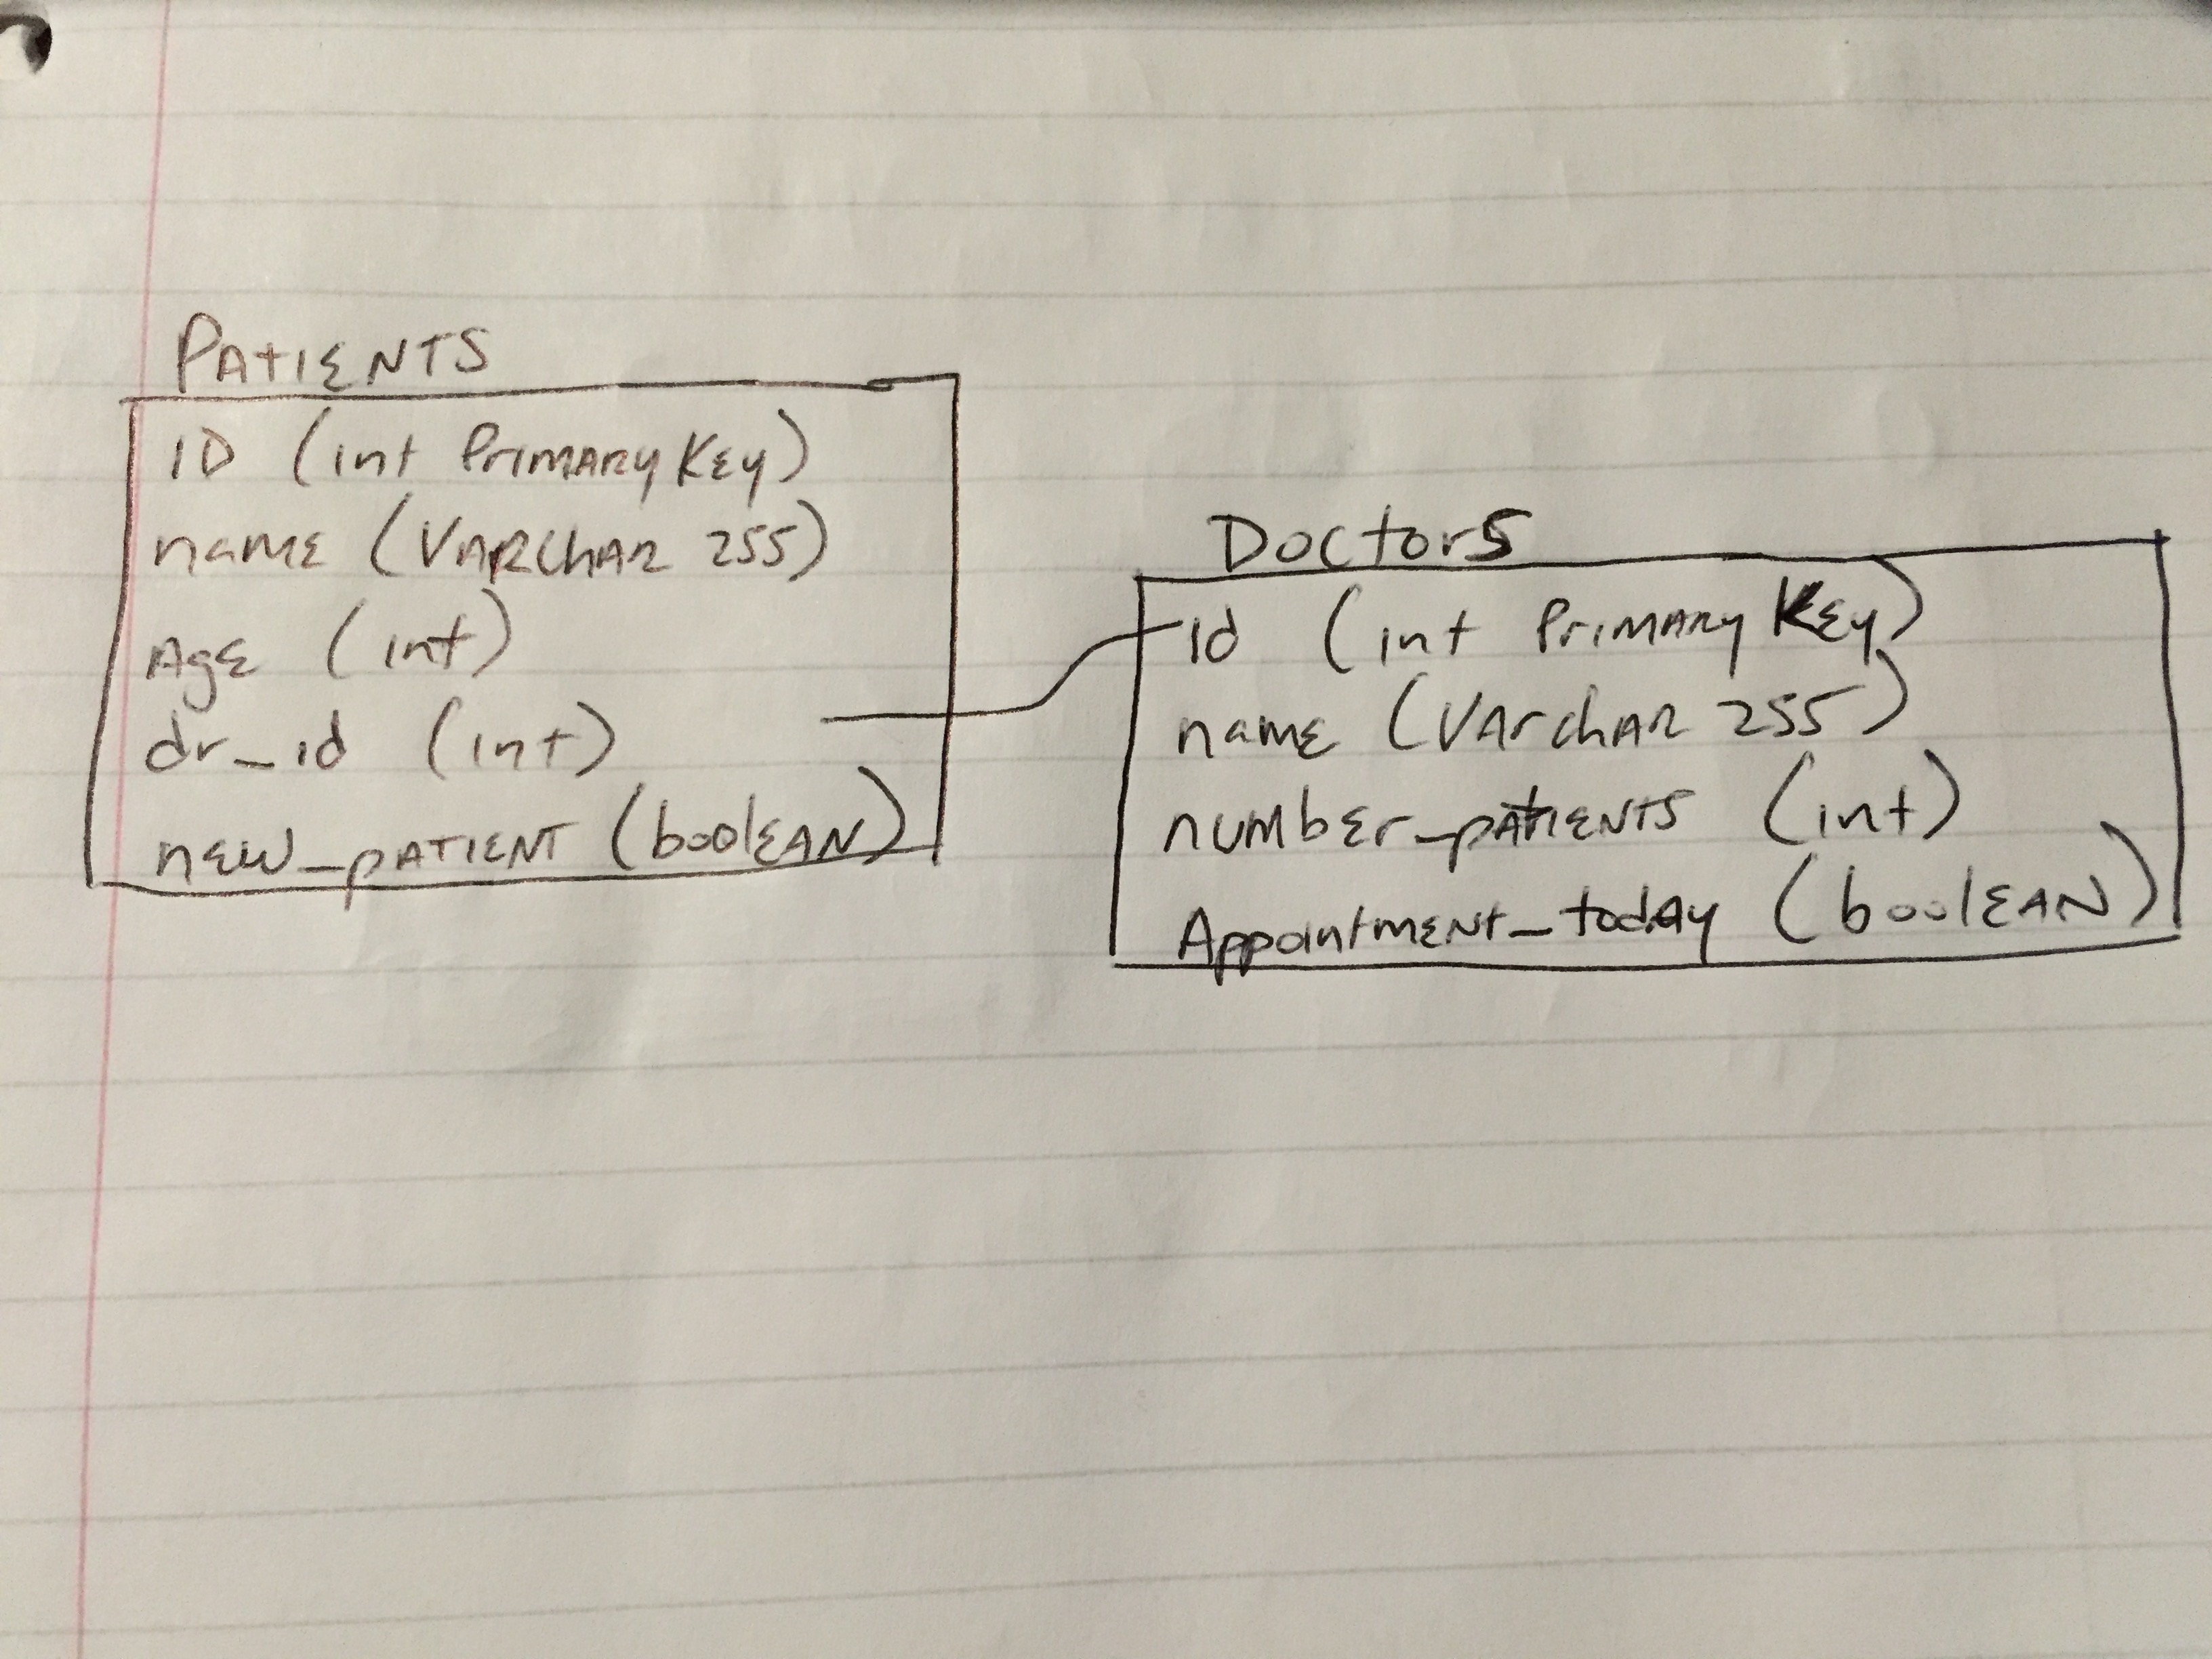 PATIENTS
ID (int Primary Key)
name (VARChAR 255)
Age (int)
dr_id (int)
new_patient (boolean)
Doctors
id (int Primary Key)
name (VarchAR 255)
number_patients (int)
Appointment_today (boolean)